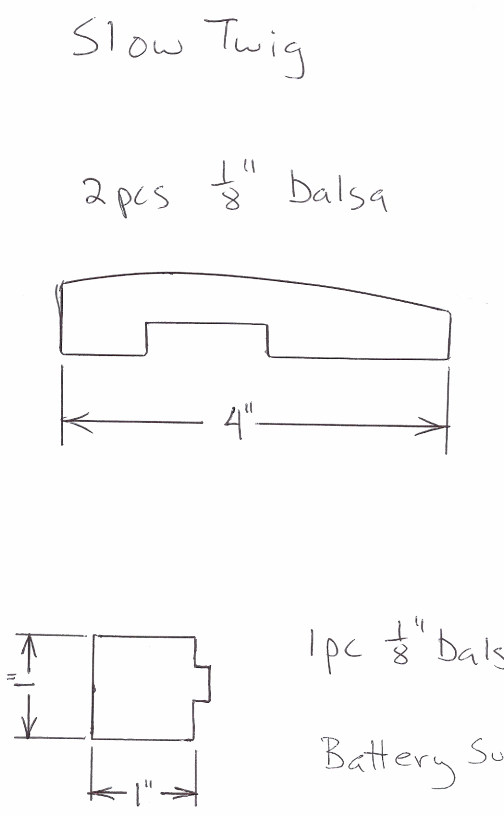 Slow Twig
2pcs 1/8" balsa
4"
1pc 1/8" bals
1"
Battery Su
1"